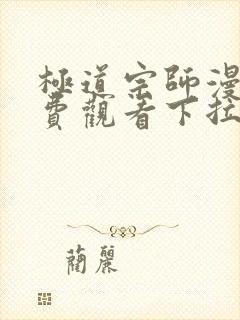 極道宗師漫
費觀看下拉
蘭麗